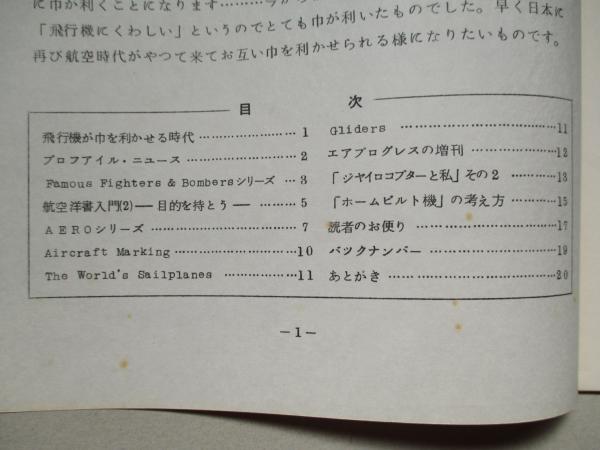 に巾が利くことになります………今から
「飛行機にくわしい」というのでとても巾が利いたものでした。早く日本に
再び航空時代がやつて来てお互い巾を利かせられる様になりたいものです。
目 次
飛行機が巾を利かせる時代 …………………… 1
プロフアイル・ニュース ……………………… 2
Famous Fighters & Bombersシリーズ … 3
航空洋書入門(2)― 目的を待とう ― ……… 5
AEROシリーズ ……………………………… 7
Aircraft Marking …………………………10
The World's Sailplanes ………………11
Gliders ………………………………11
エアプログレスの増刊 …………………12
「ジヤイロコプターと私」その2 …………13
「ホームビルト機」の考え方 …………15
読者のお便り ……………………………17
バツクナンバー …………………………19
あとがき …………………………………20
－1－